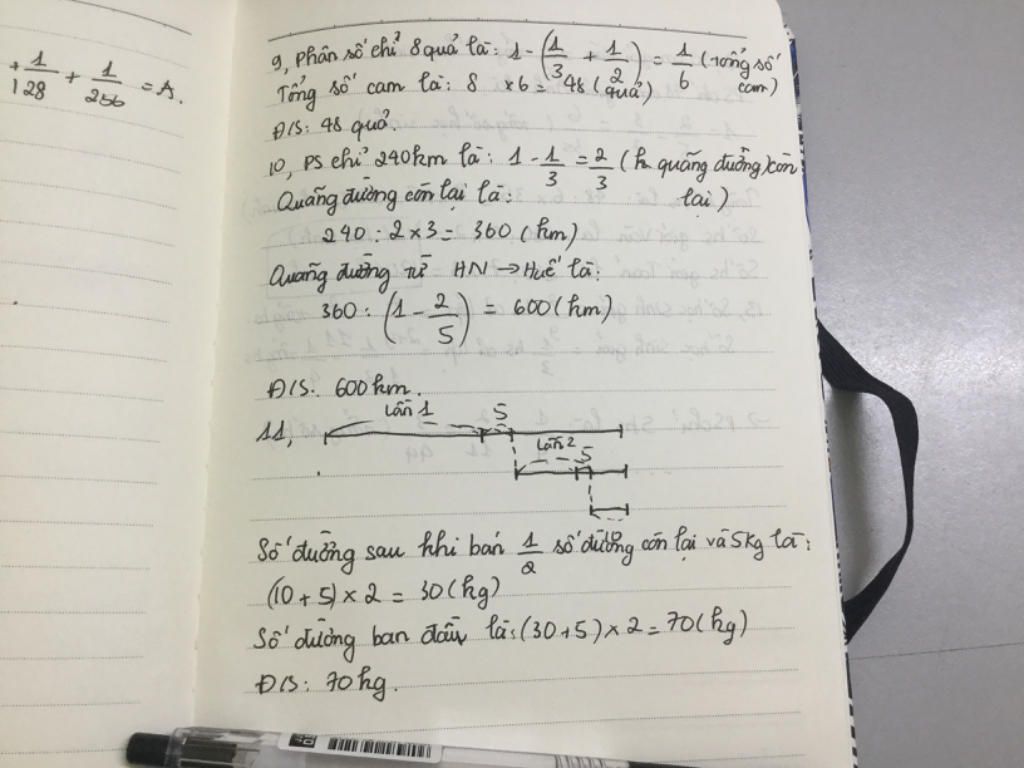 + 1/128 + 1/256 = A.
9, Phân số chỉ 8 quả là: 1 - (1/3 + 1/2) = 1/6 (tổng số cam)
Tổng số cam là: 8 x 6 = 48 (quả)
Đ/S: 48 quả.
10, PS chỉ 240km là: 1 - 1/3 = 2/3 (quãng đường còn lại)
Quãng đường còn lại là:
240 : 2 x 3 = 360 (km)
Quãng đường từ HN → Huế là:
360 : (1 - 2/5) = 600 (km)
Đ/S: 600 km.
lần 1 5
11,
lần 2 5
Số đường sau khi bán 1/2 số đường còn lại và 5kg là:
(10 + 5) x 2 = 30 (kg)
Số đường ban đầu là: (30 + 5) x 2 = 70 (kg)
Đ/S: 70 kg.